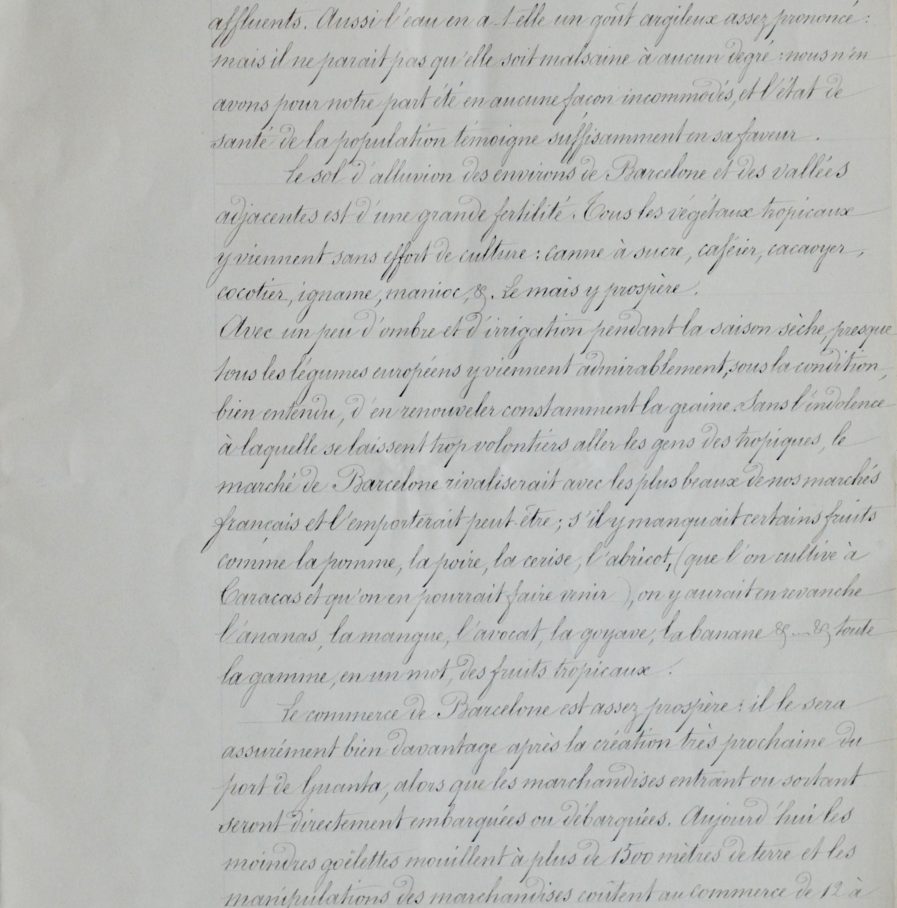 affluents. Aussi l'eau en a-t-elle un goût argileux assez prononcé :
mais il ne parait pas qu'elle soit malsaine à aucun degré : nous n'en
avons pour notre part été en aucune façon incommodés, et l'état de
santé de la population témoigne suffisamment en sa faveur.
Le sol d'alluvion des environs de Barcelone et des vallées
adjacentes est d'une grande fertilité. Tous les végétaux tropicaux
y viennent sans effort de culture : canne à sucre, caféier, cacaoyer,
cocotier, igname, manioc, &. Le maïs y prospère.
Avec un peu d'ombre et d'irrigation pendant la saison sèche, presque
tous les légumes européens y viennent admirablement, sous la condition,
bien entendu, d'en renouveler constamment la graine. Sans l'indolence
à laquelle se laissent trop volontiers aller les gens des tropiques, le
marché de Barcelone rivaliserait avec les plus beaux de nos marchés
français et l'emporterait peut-être ; s'il y manquait certains fruits
comme la pomme, la poire, la cerise, l'abricot, (que l'on cultive à
Caracas et qu'on en pourrait faire venir), on y aurait en revanche
l'ananas, la mangue, l'avocat, la goyave, la banane &....&, toute
la gamme, en un mot, des fruits tropicaux.
Le commerce de Barcelone est assez prospère : il le sera
assurément bien davantage après la création très prochaine du
port de Guanta, alors que les marchandises entrant ou sortant
seront directement embarquées ou débarquées. Aujourd'hui les
moindres goëlettes mouillent à plus de 1500 mètres de terre et les
manipulations des marchandises coûtent au commerce de 12 à